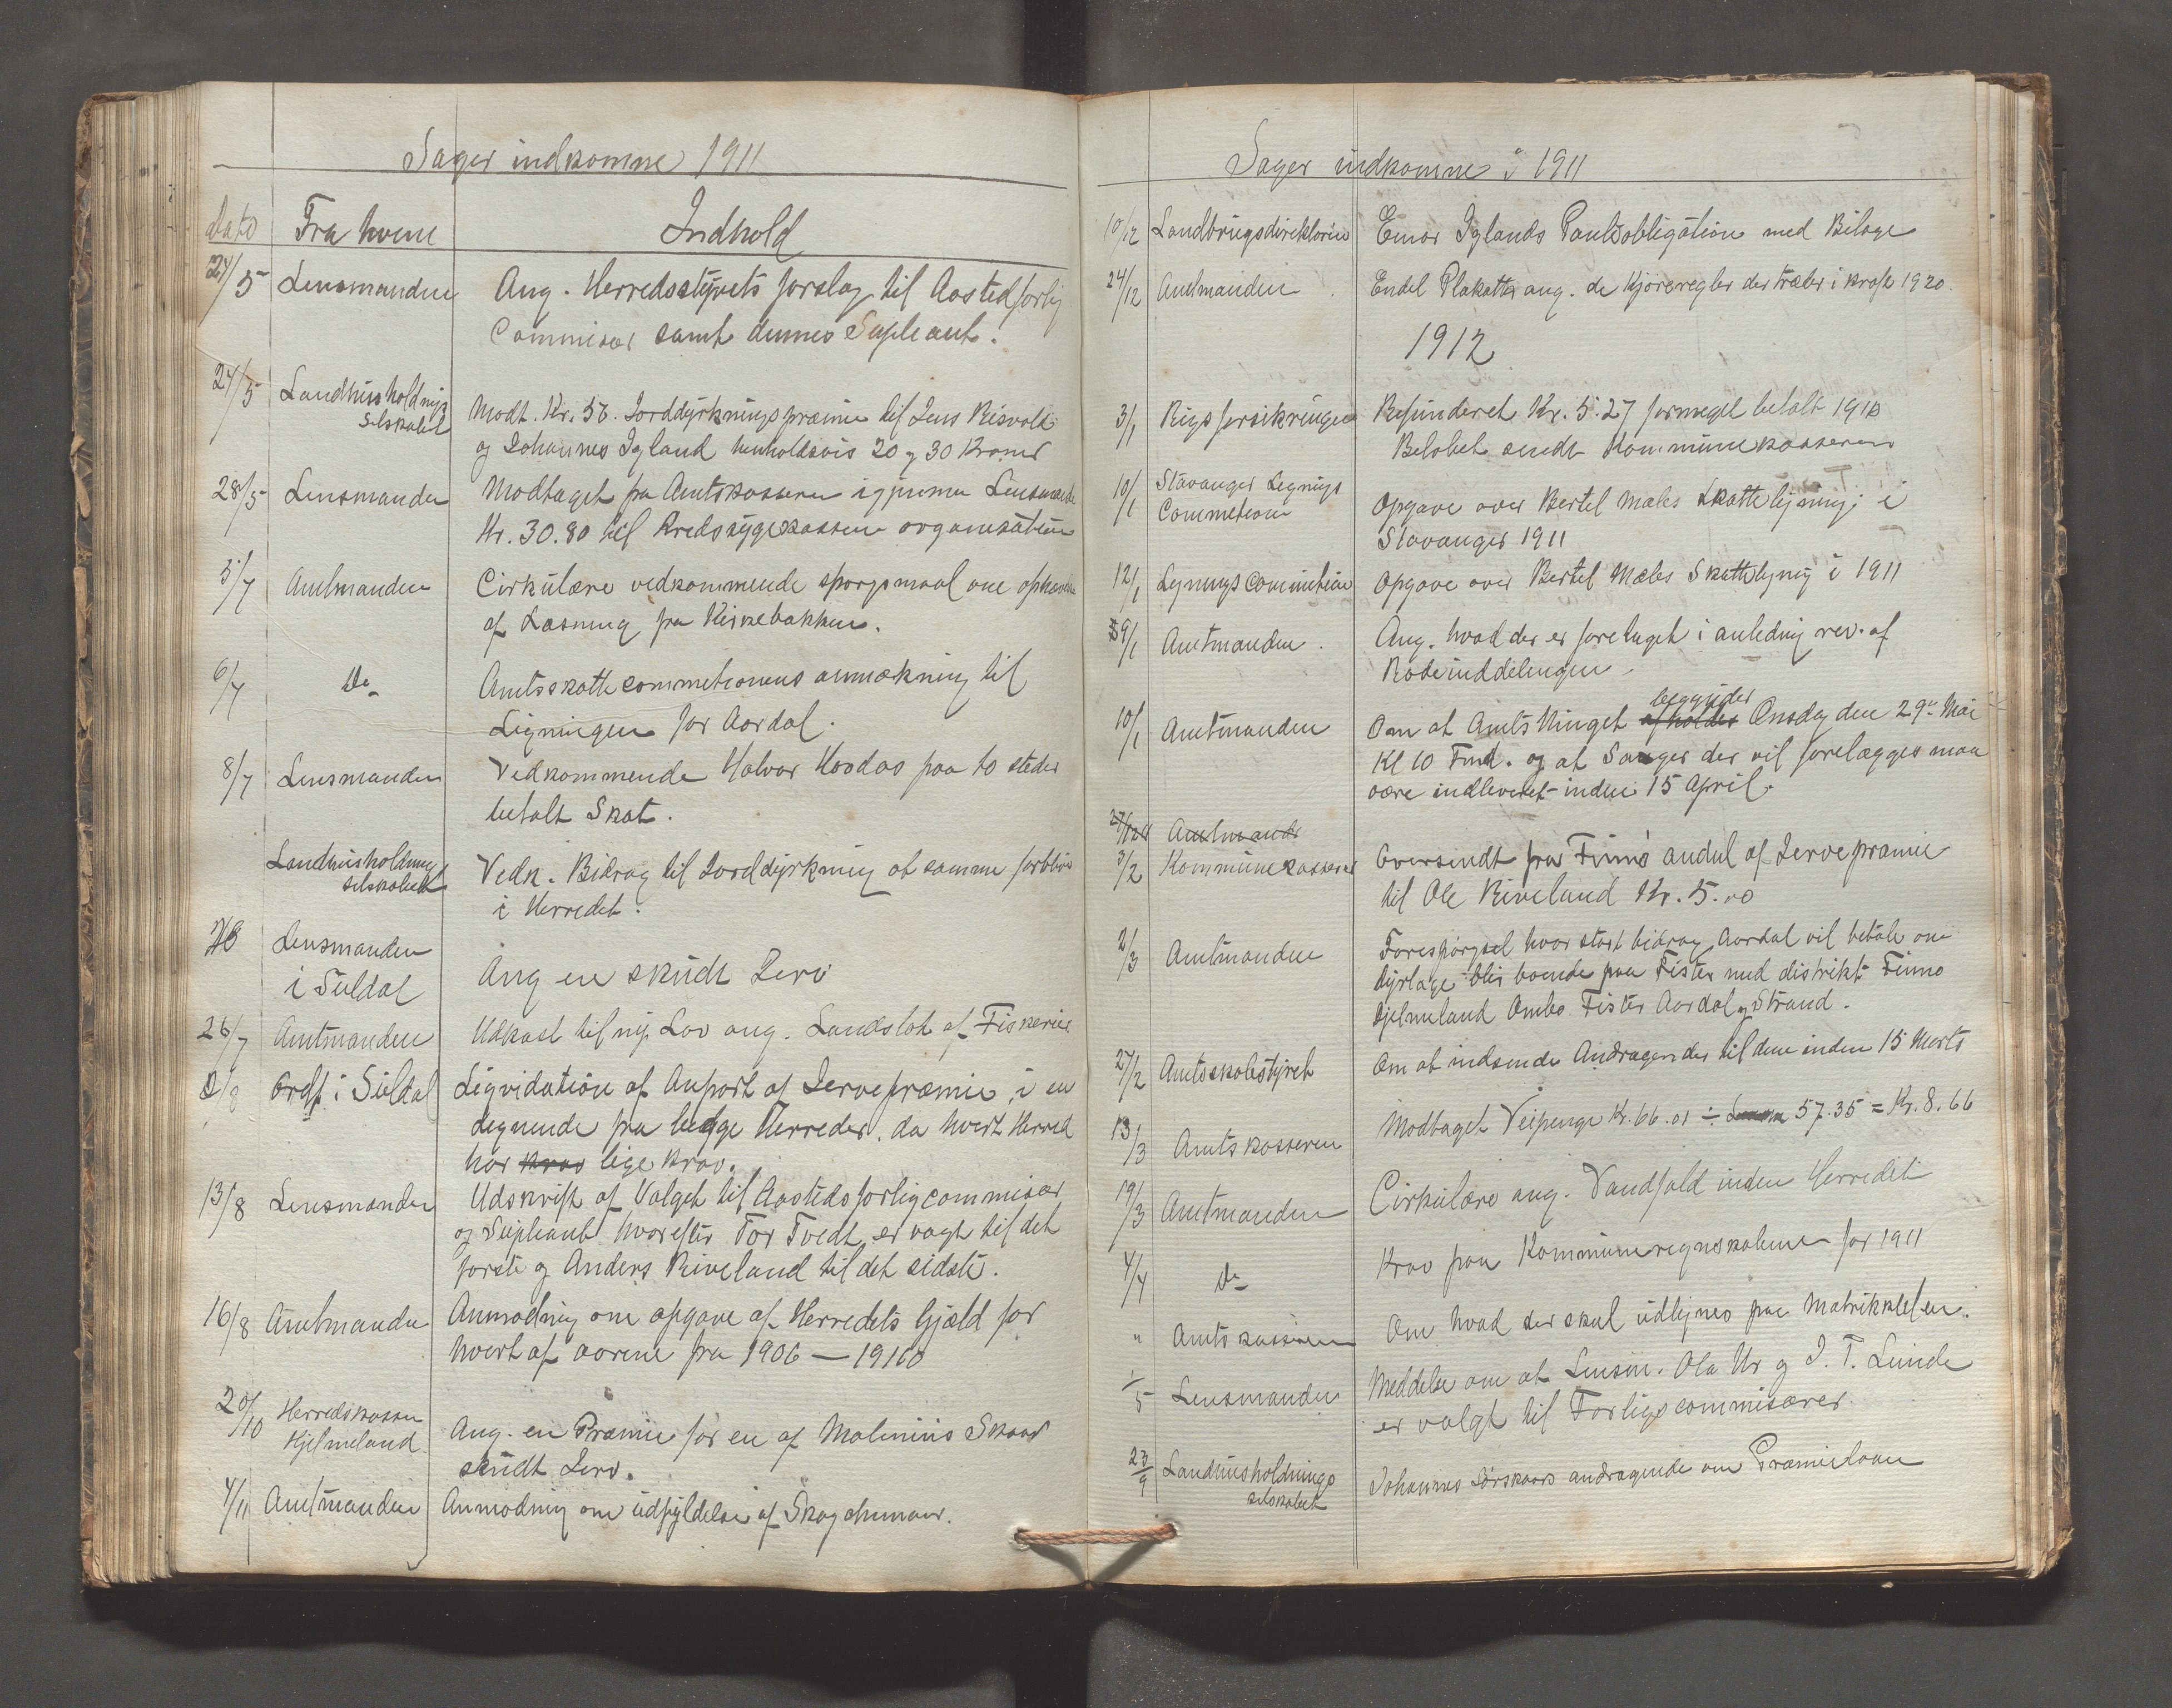 Sager indkomne 1911
Dato Fra hvem Indhold
24/5 Lensmanden Ang. Herredsstyrets forslag til Aastedforlig
Commisær samt dennes Supleant.
24/5 Landhusholdnings
Selskabet
Modt. Kr. 50. Jorddyrkningspræmie til Jens Risvold
og Johannes Igland henholdsvis 20 og 30 Kroner
28/5 Lensmanden Modtaget fra Amtskassereren igjennem Lensmanden
Kr. 30.80 til Kredssygekassens organisation
5/7 Amtmanden Cirkulære vedkommende spørgsmaal om ophævelse
af Læsning fra Kirkebakken.
6/7 Do Amtsskattecommetionens anmærkning til
Ligningen for Aardal.
8/7 Lensmanden Vedkommende Halvor Hovdas paa to steder
betalt Skat.
Landhusholdnings
selskabet
Vedk. Bidrag til Jorddyrkning at samme forbliver
i Herredet.
Lensmanden
i Suldal
Ang en skudt Jerv
26/7 Amtmanden Udkast til ny Lov ang. Landslot af Fiskerier
2/8 Ordf. i Suldal Ligvidation af Anpart af Jervepræmie, i en
lignende fra begge Herreder, da hvert Herred
har krav lige krav.
13/8 Lensmanden Udskrift af Valget til Aastedsforligcommisær
og Supleant hvorefter Tor Tvedt er valgt til det
første og Anders Riveland til det sidste.
16/8 Amtmanden Anmodning om opgave af Herredets Gjæld for
hvert af aarene fra 1906 — 1910
20/10 Herredskassen
Hjelmeland
Ang. en Præmie for en af Malinius Skaar
skudt Jerv.
4/11 Amtmanden Anmodning om udfyldelse af Skogchemaer.
Sager indkomne i 1911
10/12 Landbrugsdirektøren Einar Iglands Pantobligation med Bilage
24/12 Amtmanden Endel Plakatter ang. de Kjøreregler der træder i kraft 1920.
1912
3/1 Rigsforsikringen Refunderet Kr. 5.27 formeget betalt 1910
Beløbet sendt Kommunekassereren
10/1 Stavanger Legnings
Commetion
Opgave over Bertel Mæles Skattelijning i
Stavanger 1911
12/1 Legningscommition Opgave over Bertel Mæles Skattelijnig i 1911
9/1 Amtmanden. Ang. hvad der er foretaget i anledning rev. af
Rodeinddelingen
10/1 Amtmanden Om at Amtsthinget afholdes begynder Onsdag den 29de Mai
Kl 10 Fmd. og at Sager der vil forelægges maa
være indleveret inden 15 April.
Amtmand
3/2 Kommunekasserer Oversendt fra Finnø andel af Jervepræmie
til Ole Riveland Kr. 5.00
2/3 Amtmanden Forespørgsel hvor stort bidrag Aardal vil betale om
dyrlæge blir boende paa Fister med distrikt Finnø
Hjelmeland Ombo Fister Aardal og Strand.
27/2 Amtsskolestyret Om at indsende Andragender til dem inden 15 Marts
13/3 Amtskasseren Modtaget Veipenge Kr. 66.01 ÷ 57.35 = Kr. 8.66
19/3 Amtmanden Cirkulære ang. Vandfald inden Herredet
4/4 Do Krav paa Kommuneregnskabene for 1911
" Amtskasseren Om hvad der skal udlignes paa Matrikkelen.
1/5 Lensmanden Meddelse om at Lensm. Ola Ur og J. T. Lunde
er valgt til Forligscommisærer.
23/9 Landhusholdnings
selskabet
Johannes Sørskaars andragende om Præmielaan